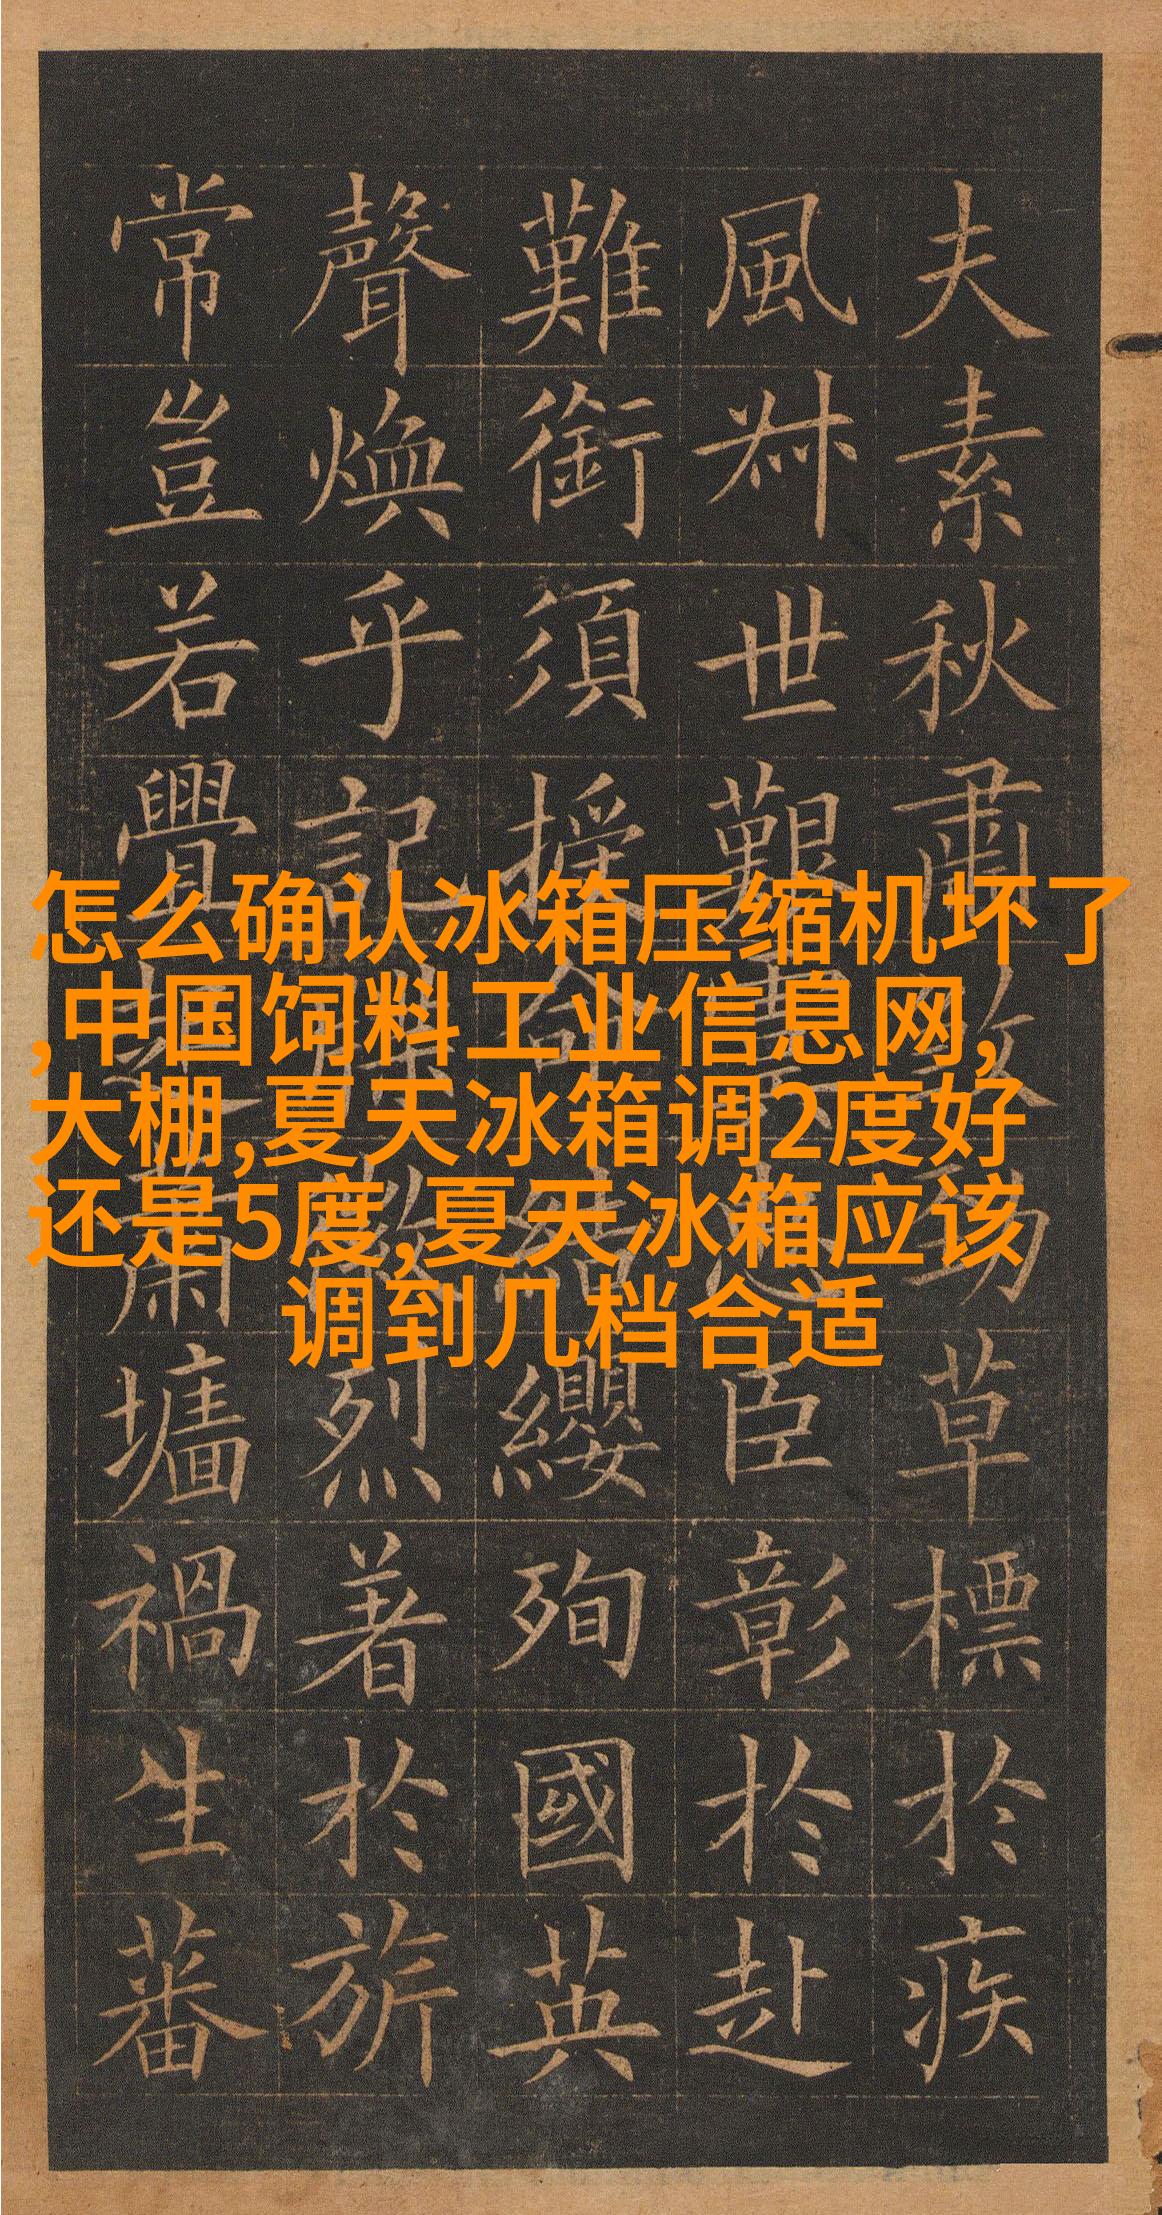 夫素秋肅煞勁草標於疾
風叔世艱虞忠臣彰於赴
難銜須授命結纓殉國英
聲煥乎記牒徽烈著於旂
常豈若舋起蕭墻禍生蕃
怎么确认冰箱压缩机坏了
,中国饲料工业信息网,
大棚,夏天冰箱调2度好
还是5度,夏天冰箱应该
调到几档合适